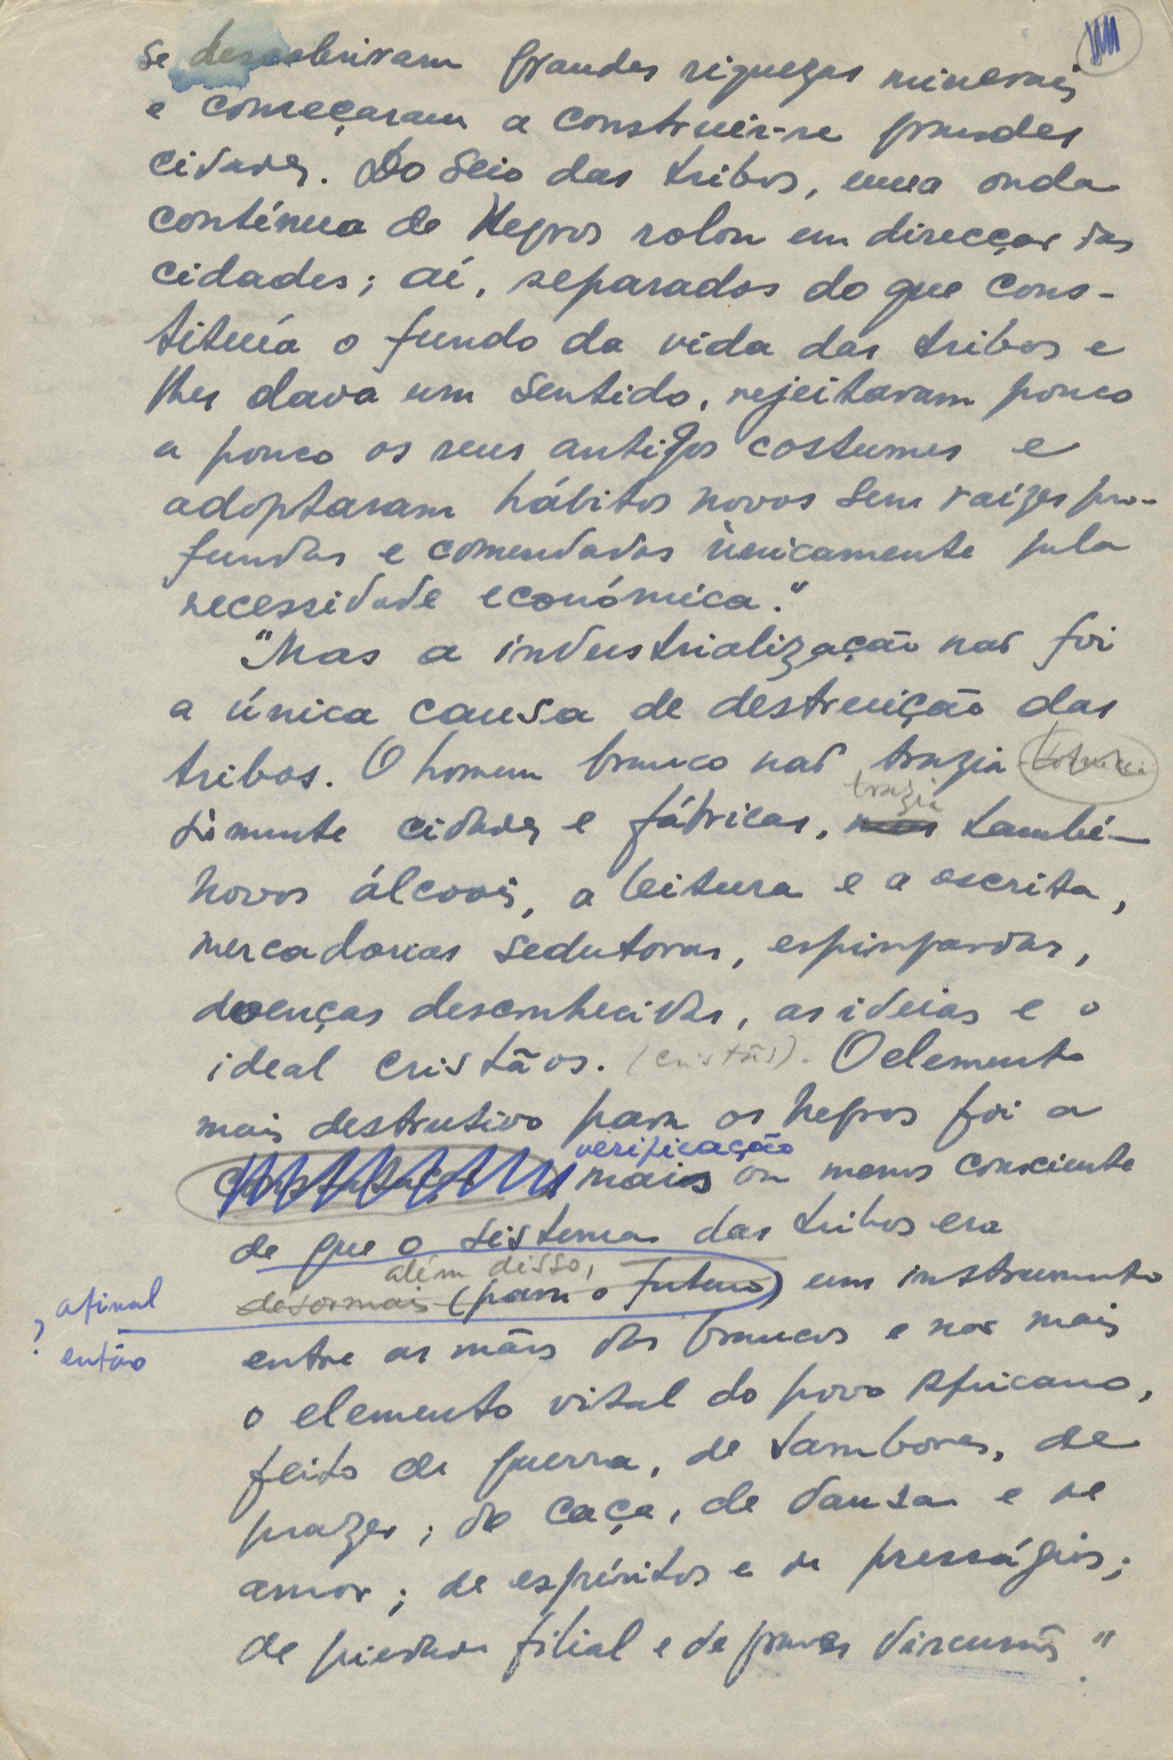 se descobriram grandes riquezas minerais
e começaram a construir-se grandes
cidades. Do seio das tribos, uma onda
contínua de Negros rolou em direcção das
cidades; aí, separados do que cons-
tituía o fundo da vida das tribos e
lhes dava um sentido, rejeitaram pouco
a pouco os seus antigos costumes e
adoptaram hábitos novos sem raízes pro-
fundas e comendados ùnicamente pela
necessidade económica."
"Mas a industrialização não foi
a única causa de destruição das
tribos. O homem branco não trazia
trazia
sòmente cidades e fábricas, mas també-
novos álcoois, a leitura e a escrita,
mercadorias sedutoras, espingardas,
doenças desconhecidas, as ideias e o
ideal cristãos. (cristãs). O elemento
mais destrutivo para os negros foi a
verificação
mais ou menos consciente
de que o sistema das tribos era
além disso,
desormais (para o futuro) um instrumento
afinal
? então
entre as mãos dos brancos e não mais
o elemento vital do povo Africano,
feito de guerra, de tambores, de
prazer; de caça, de dansa e de
amor; de espíritos e de presságios;
de piedade filial e de graves discursos."